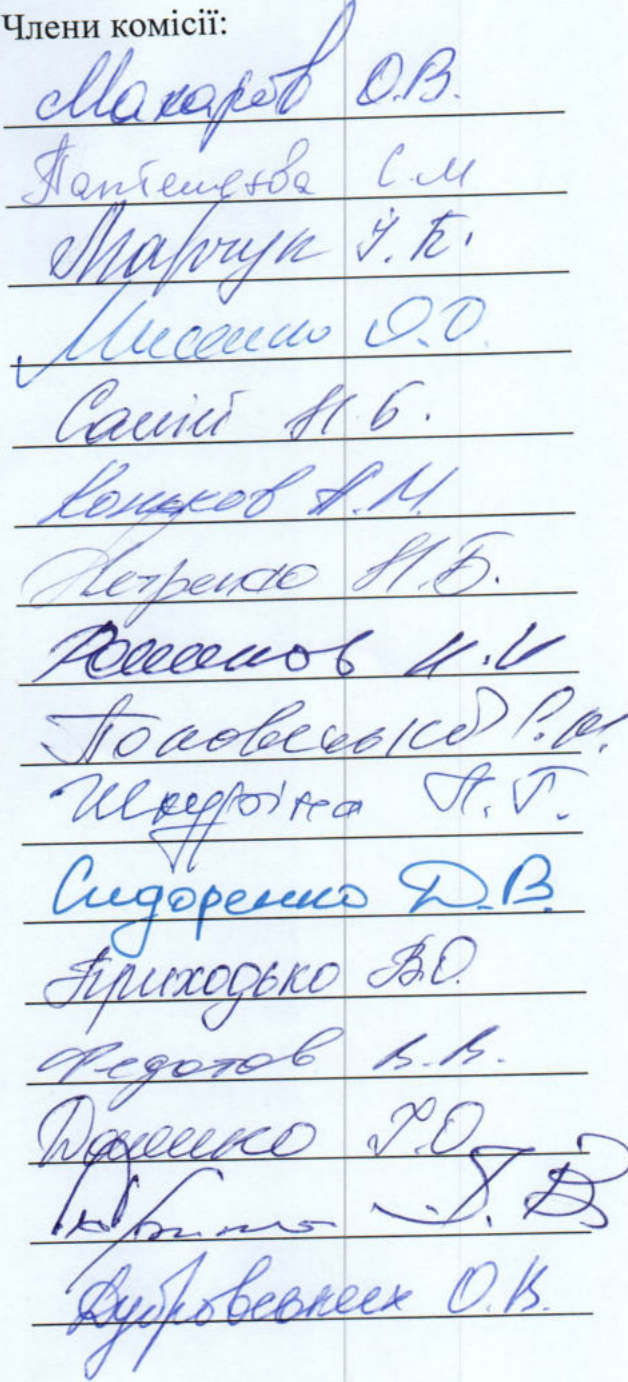 Члени комісії:
Макаров О.В.
Пантелеєва С.М
Марчук І.К.
Мисенко О.О.
Салій Н.Б.
Коньков А.М.
Петренко Н.Б.
Романов И.И
Поповський Р.М.
Шкуріна А.Г.
Сидоренко Д.В.
Приходько В.О.
Федотов В.В.
Даценко Г.О.
В
Дубровевнеех О.В.